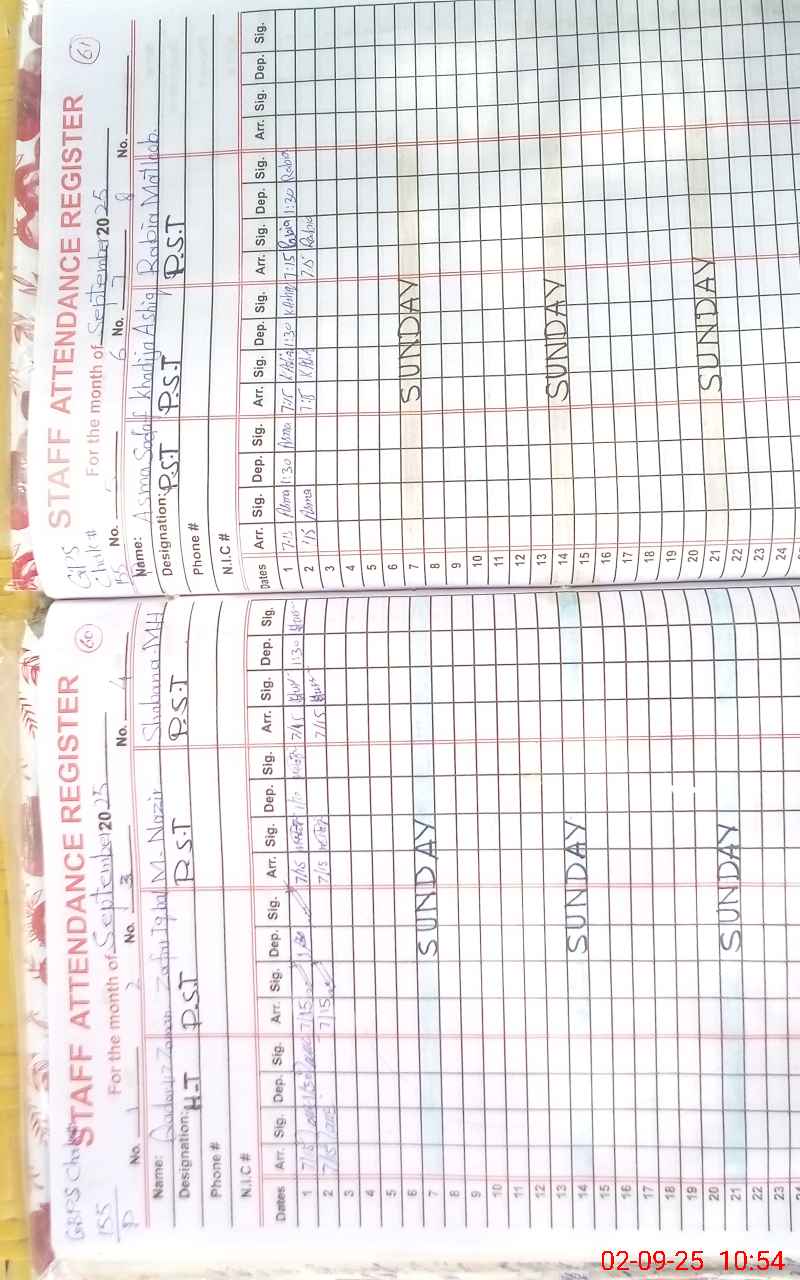 GBPS Chak#
155
P
60
STAFF ATTENDANCE REGISTER
For the month of September 2025
No. 1 2 No. 3 No. 4
Name: Zafar Iqbal M-Nazir Shabana-MH
Designation: H-T P.S.T P.S.T P.S.T
Phone #
N.I.C #
Dates Arr. Sig. Dep. Sig. Arr. Sig. Dep. Sig. Arr. Sig. Dep. Sig. Arr. Sig. Dep. Sig.
1 7/15 1/30 7/15 1/30 7/15 7/15 1:30
2 7/15 7/15 7/15 7/15
3
4
5
6
7 SUNDAY
8
9
10
11
12
13
14 SUNDAY
15
16
17
18
19
20
21 SUNDAY
22
23
24
GPS
Chak#
155
61
STAFF ATTENDANCE REGISTER
For the month of September 2025
No. 5 6 No. 7 8 No.
Name: Asma Sadaf Khadija Ashiq Rabia Matloob.
Designation: P.S.T P.S.T P.S.T
Phone #
N.I.C #
Dates Arr. Sig. Dep. Sig. Arr. Sig. Dep. Sig. Arr. Sig. Dep. Sig. Arr. Sig. Dep. Sig.
1 7:15 Asma 1:30 Asma 7:15 1:30 7:15 Rabia 1:30 Rabia
2 Asma 7:15 7:15 Rabia
3
4
5
6
7 SUNDAY
8
9
10
11
12
13
14 SUNDAY
15
16
17
18
19
20
21 SUNDAY
22
23
24
02-09-25 10:54